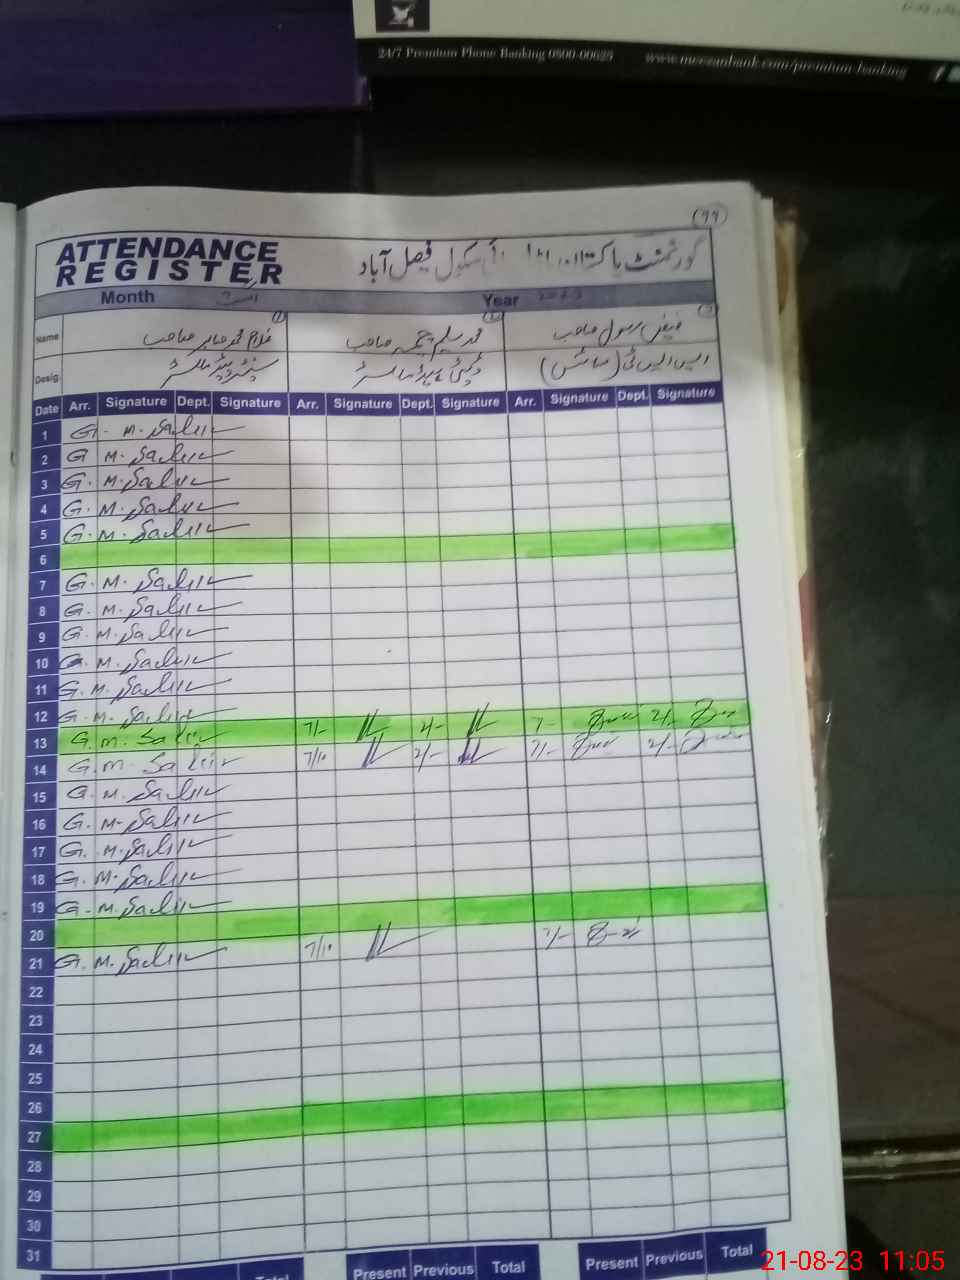 24/7 Premium Phone Banking 0800-00625 www.meezanbank.com/premium-banking
(99)
ATTENDANCE REGISTER
گورنمنٹ پاکستان سکول فیصل آباد
Month اگست Year 2023
Name غلام محمد صابر صاحب محمد سلیم چیمہ صاحب فیض رسول صاحب
Desig. سینئر ہیڈ ماسٹر ڈپٹی ہیڈ ماسٹر ایس ایس ٹی (سائنس)
Date Arr. Signature Dept. Signature Arr. Signature Dept. Signature Arr. Signature Dept. Signature
1 G. M. Sabir
2 G M. Sabir
3 G. M. Sabir
4 G. M. Sabir
5 G. M. Sabir
6
7 G. M. Sabir
8 G. M. Sabir
9 G. M. Sabir
10 G. M. Sabir
11 G. M. Sabir
12 G. M. Sabir
13 G. M. Sabir 7/- 2/- 7- 2/-
14 G. M. Sabir 7/10 2/- 7/- 2/-
15 G. M. Sabir
16 G. M. Sabir
17 G. M. Sabir
18 G. M. Sabir
19 G. M. Sabir
20
21 G. M. Sabir 7/10 7/-
22
23
24
25
26
27
28
29
30
31
Total Present Previous Total Present Previous Total
21-08-23 11:05